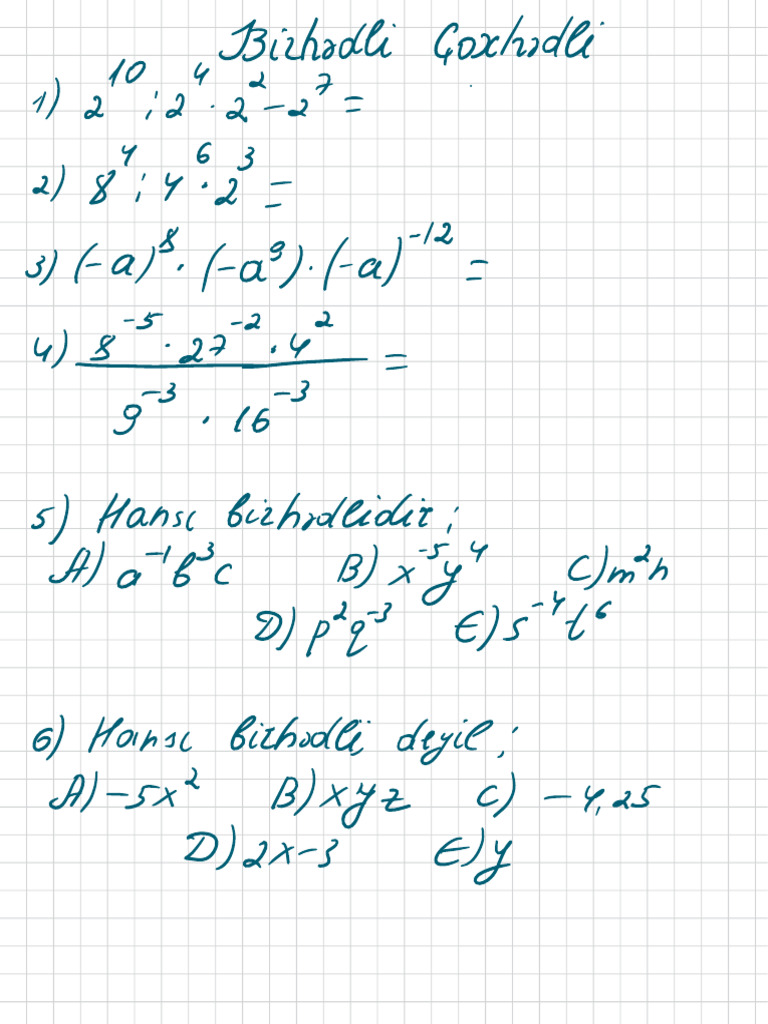 Birhədli Çoxhədli
1) 2¹⁰ : 2⁴ · 2² − 2⁷ =
2) 8⁴ : 4⁶ · 2³ =
3) (−a)⁸ · (−a⁹) · (−a)⁻¹² =
4) 8⁻⁵ · 27⁻² · 4² =
9⁻³ · 16⁻³
5) Hansı birhədlidir;
A) a⁻¹b³c B) x⁻⁵y⁴ C) m²n
D) p²q⁻³ E) s⁻⁴t⁶
6) Hansı birhədli deyil;
A) −5x² B) xyz C) −4,25
D) 2x−3 E) y